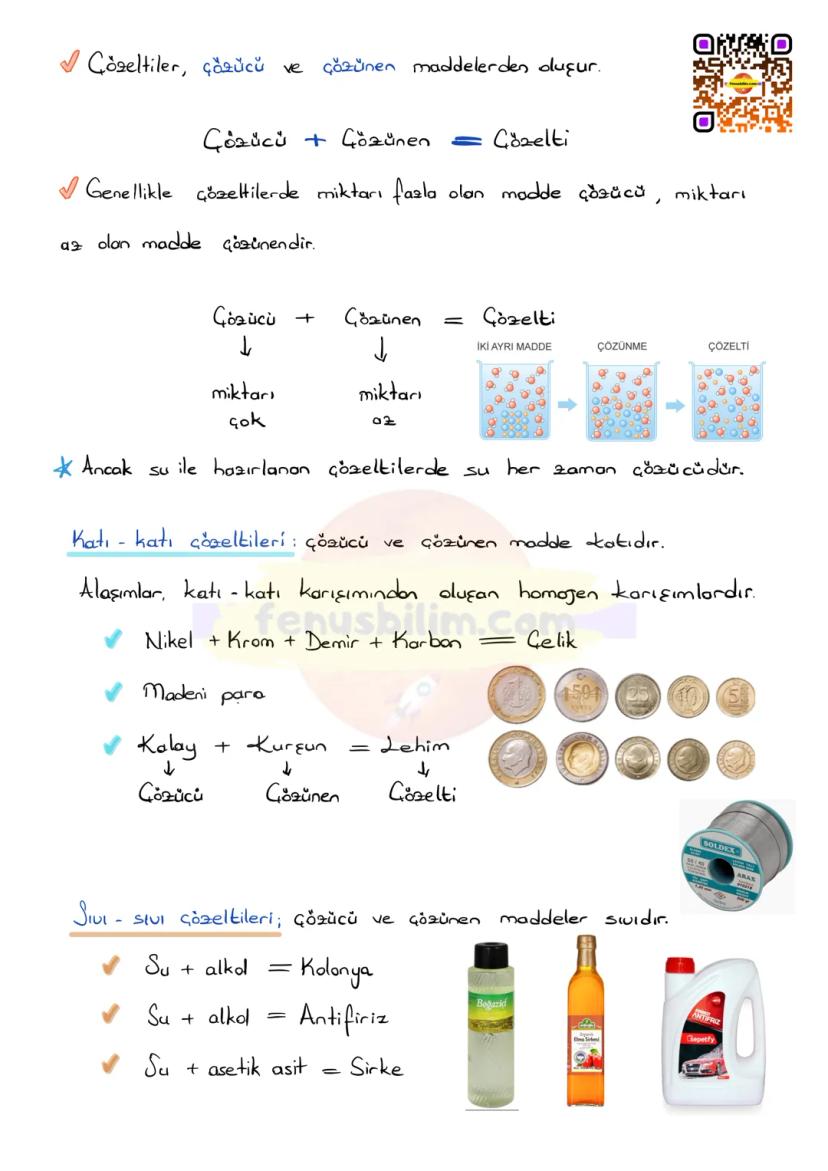 Çözeltiler, çözücü ve çözünen maddelerden oluşur.
fenusbilim.com
Çözücü + Çözünen = Çözelti
Genellikle çözeltilerde miktarı fazla olan madde çözücü, miktarı
az olan madde çözünendir.
Çözücü + Çözünen = Çözelti
↓ ↓
miktarı miktarı
çok az
İKİ AYRI MADDE ÇÖZÜNME ÇÖZELTİ
* Ancak su ile hazırlanan çözeltilerde su her zaman çözücüdür.
Katı - katı çözeltileri: çözücü ve çözünen madde katıdır.
Alaşımlar, katı - katı karışımından oluşan homojen karışımlardır.
fenusbilim.com
Nikel + Krom + Demir + Karbon = Çelik
Madeni para
1 50 25 10 5
Kalay + Kurşun = Lehim
↓ ↓ ↓
Çözücü Çözünen Çözelti
SOLDEX
ARAX
Sıvı - sıvı çözeltileri; çözücü ve çözünen maddeler sıvıdır.
Su + alkol = Kolonya
Su + alkol = Antifiriz
Su + asetik asit = Sirke
Boğaziçi
Elma Sirkesi
ANTİFRİZ
Sepetfy